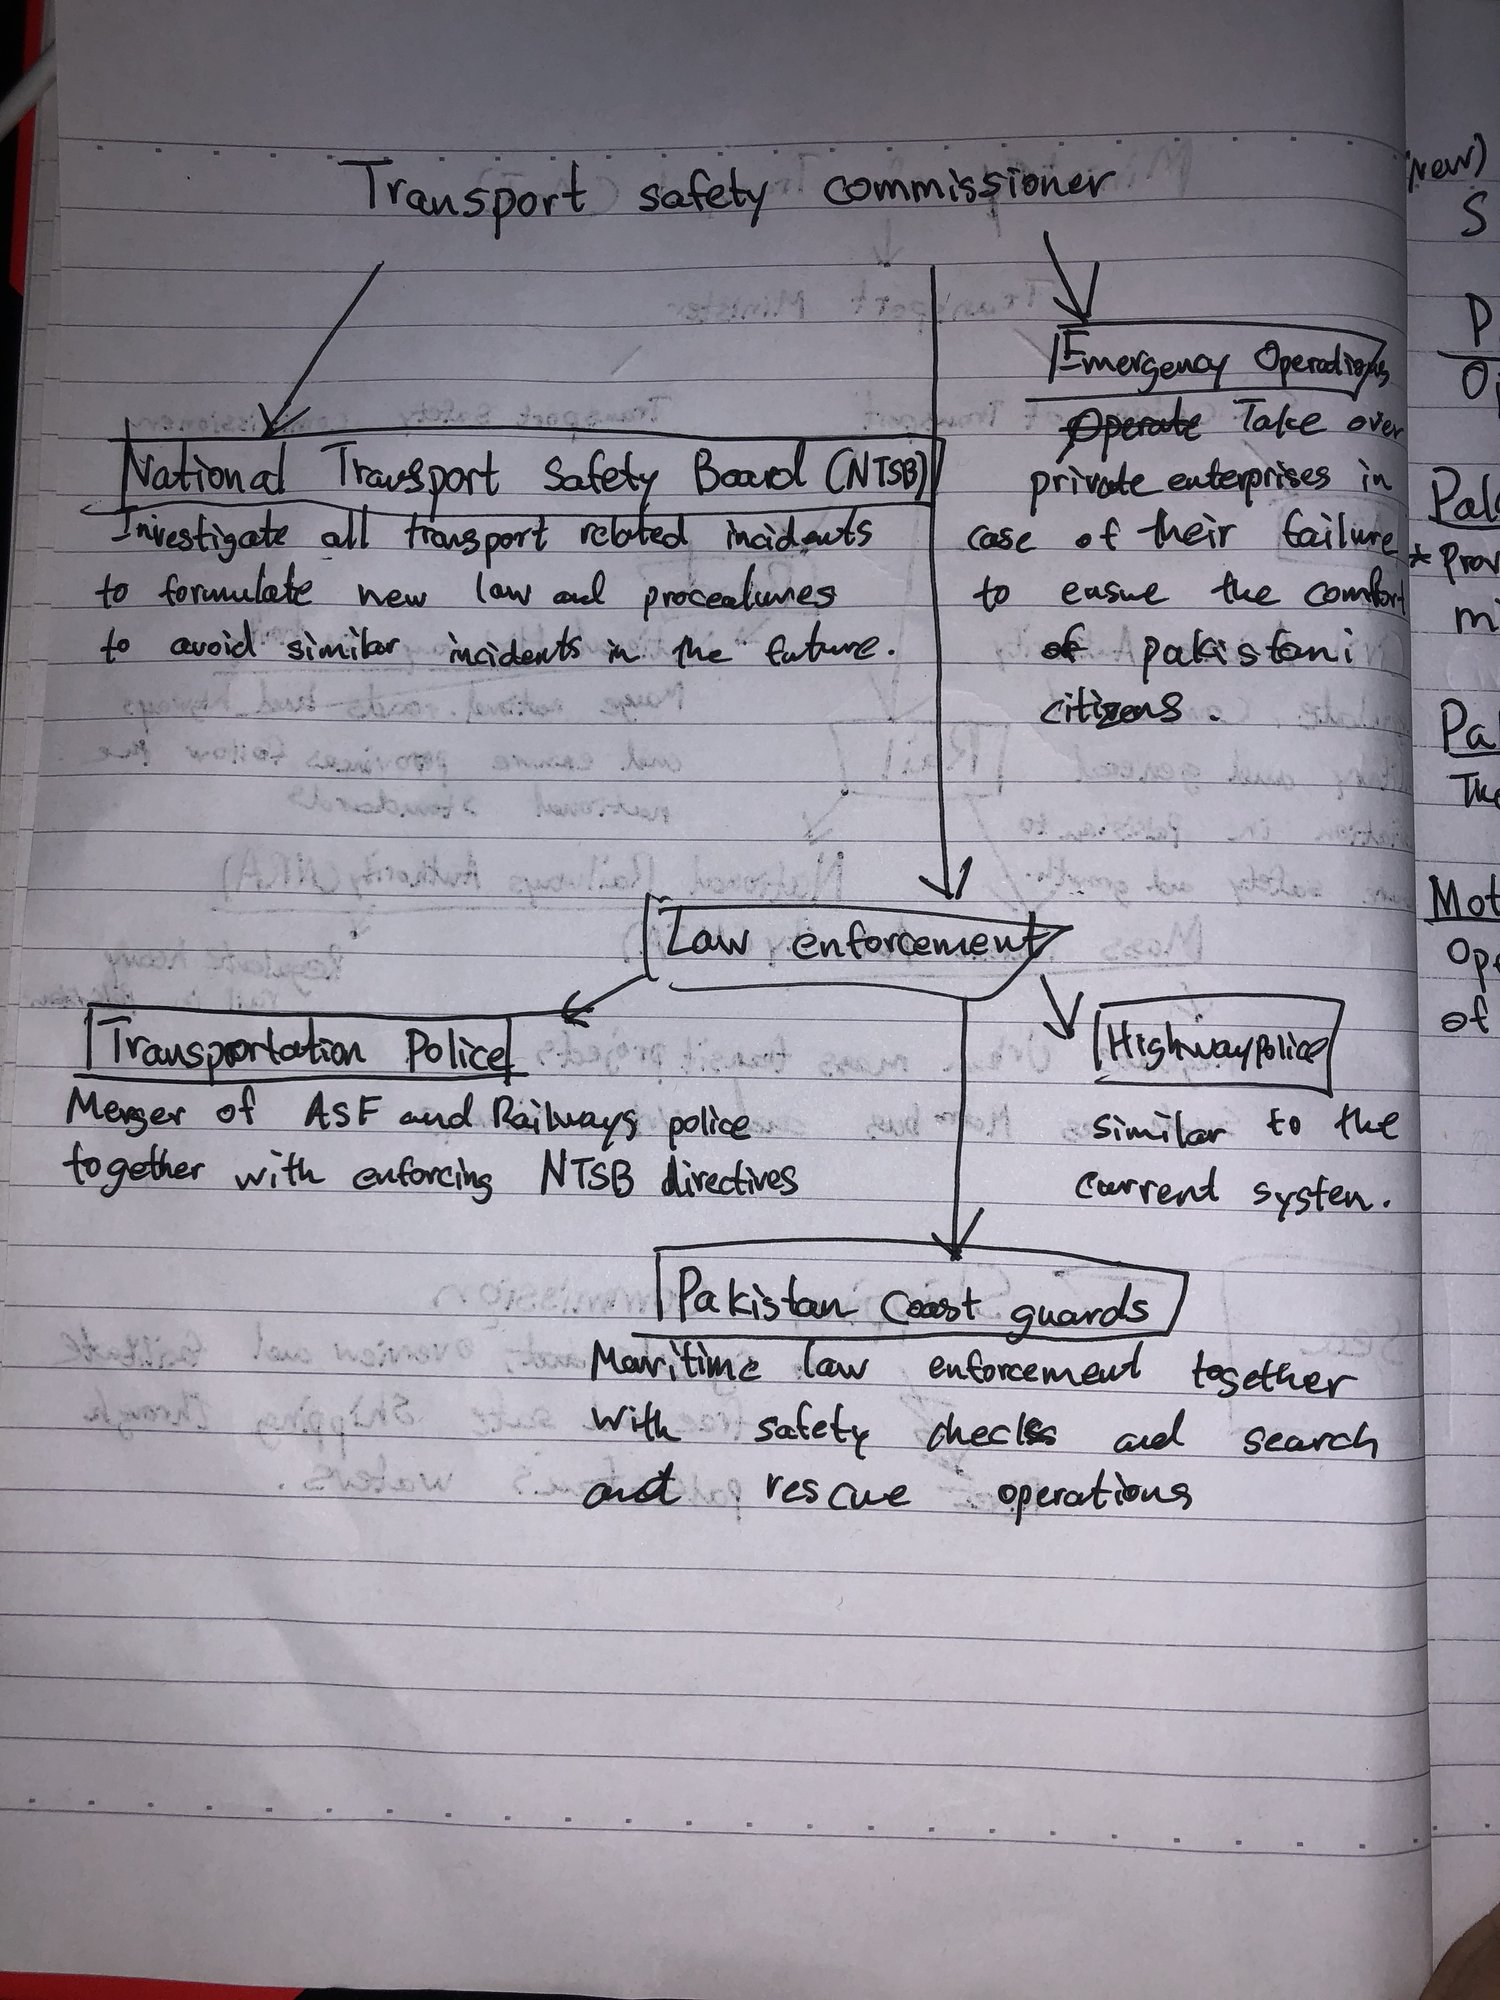 Transport safety commissioner
Emergency Operations
Operate Take over
private enterprises in
case of their failure
to easue the comfort
of pakistani
citizens.
National Transport Safety Board (NTSB)
Investigate all transport related incidents
to formulate new law and procedures
to avoid similar incidents in the future.
Law enforcement
Transportation Police
Merger of ASF and Railways police
together with enforcing NTSB directives
Highway police
Similar to the
current systen.
Pakistan Coast guards
Maritime law enforcement together
with safety checks and search
and rescue operations
(new)
S
P
Pak
* Prov
mi
Pa
The
Mot
Ope
of